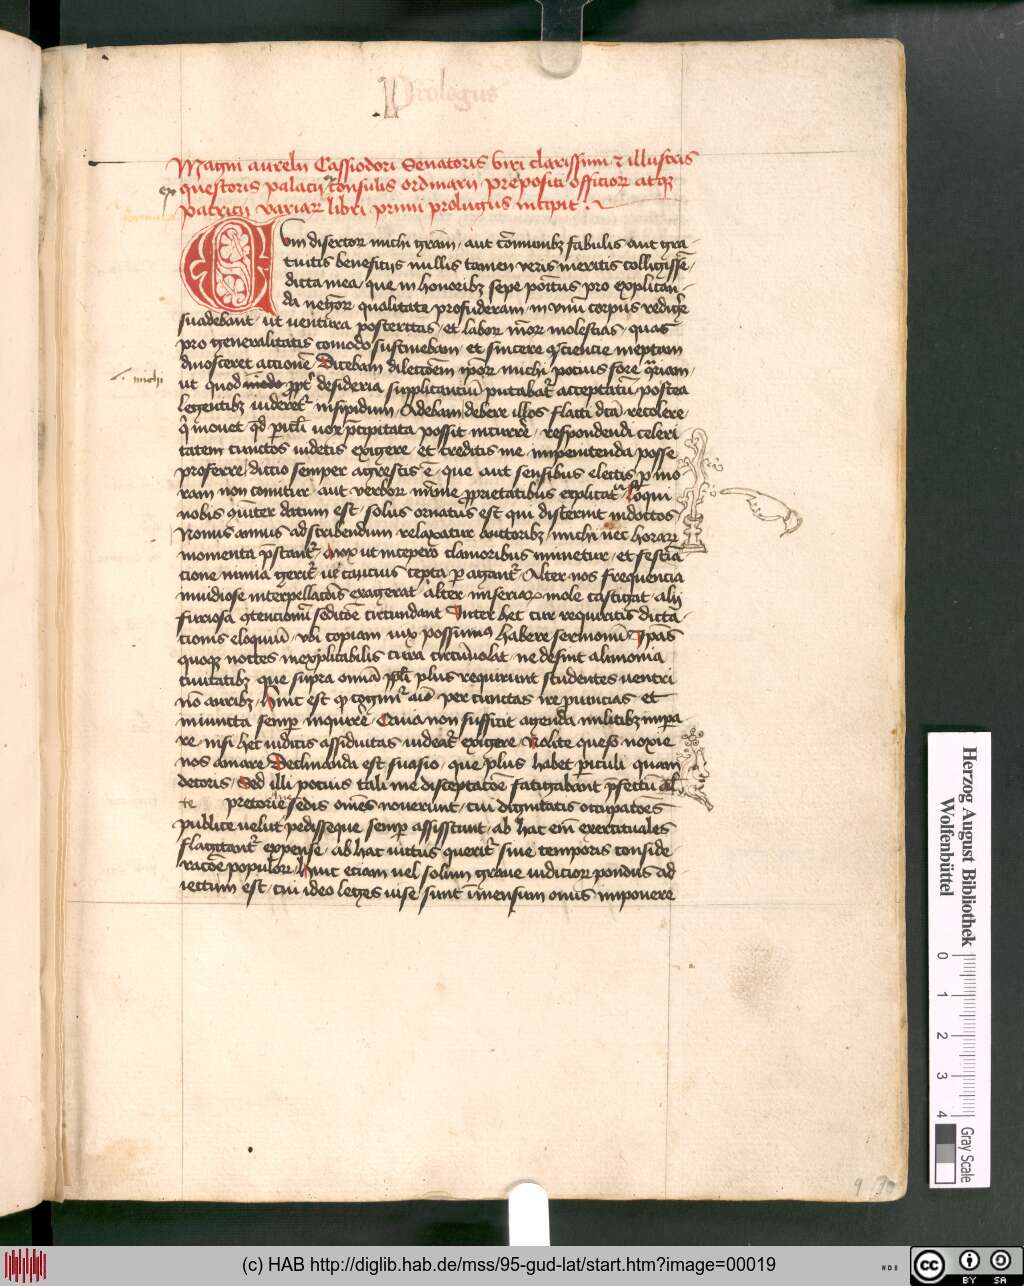 Prologus
Magni aurelii Cassiodori Senatoris viri clarissimi ⁊ illustris
ex questoris palacii consulis ordinarii prepositi officiorꝝ atqꝫ
patricii variarꝝ libri primi prologus incipit
Cvm disertorꝝ michi graciam, aut com̄unibꝫ fabulis aut gra-
tuitis beneficijs nullis tamen veris meritis collegissē,
dicta mea, que in honoribꝫ sepe positus pro explican-
da negocioꝝ qualitate profuderam, in vnū corpus redige
suadebant, ut uentura posteritas, et labor meoꝝ molestias, quas
pro generalitatis comodo sustinebam et sincere ꝯsciencie ineptam
dinosceret accionē Dicebam dilectōem ipsoꝝ michi pocius fore ꝯtrariam,
.. michi
ut quod modo ꝓpter desideria supplicantiū putabatur acceptatū, postea
legentibꝫ videretur insipidum Adebam debere illos flacci dicta recolere,
qui monet quid periculi uox precipitata possit incurrere, respondendi celeri
tatem cunctos uidetis exigere, et creditis me inpenitenda posse
proferre, dictio semper agrestis ē, que aut sensibus electis per mo
ram non comitur aut verborꝝ minime proprietatibus explicatur Loqui
nobis communiter datum est, solus ornatus est qui discernit indoctos
Nonus annus ad scribendum relaxatur auctoribꝫ, michi nec horarꝝ
momenta prestantur Mox ut incepero clamoribus
cione nimia geritur ne caucius cepta peragantur Alter nos frequencia
inuidiose interpellacōis exagerat, alter miseriarꝝ mole castigat alij
furiosa ꝯtencionum sedicōe circundant Inter hec cur requiritis dicta-
cionis eloquiū, vbi copiam uix possumus habere sermonum Ipsas
quoqꝫ noctes inexplicabilis cura circumuolat, ne desint alimonia
ciuitatibꝫ que supra omnia populi plus requirunt studentes uentri
nō auribꝫ, Hinc est quod cogimur animo per cunctas ire prouincias et
iniuncta semper inquirere, Quia non sufficit agenda militibꝫ impa
re, nisi hec iudicis assiduitas uideatur exigere, Nolite queso noxie
nos amare Declinanda est suasio, que plus habet periculi quam
decoris, Sed illi pocius tali me disceptacōe fatigabant prefectum
te pretorie sedis omēs nouerunt, cui dignitatis occupatoēs
publice velut pedisseque semper assistunt, ab hac enim exercituales
flagitantur expense, ab hac victus queritur sine temporis conside-
racōe populorꝝ, Hinc etiam uel solum graue iudiciorꝝ pondus ad
iectum est, cui ideo leges uise sunt īmensum onus imponere
9
Herzog August Bibliothek
Wolfenbüttel
0 1 2 3 4
Gray Scale
(c) HAB http://diglib.hab.de/mss/95-gud-lat/start.htm?image=00019
cc BY SA